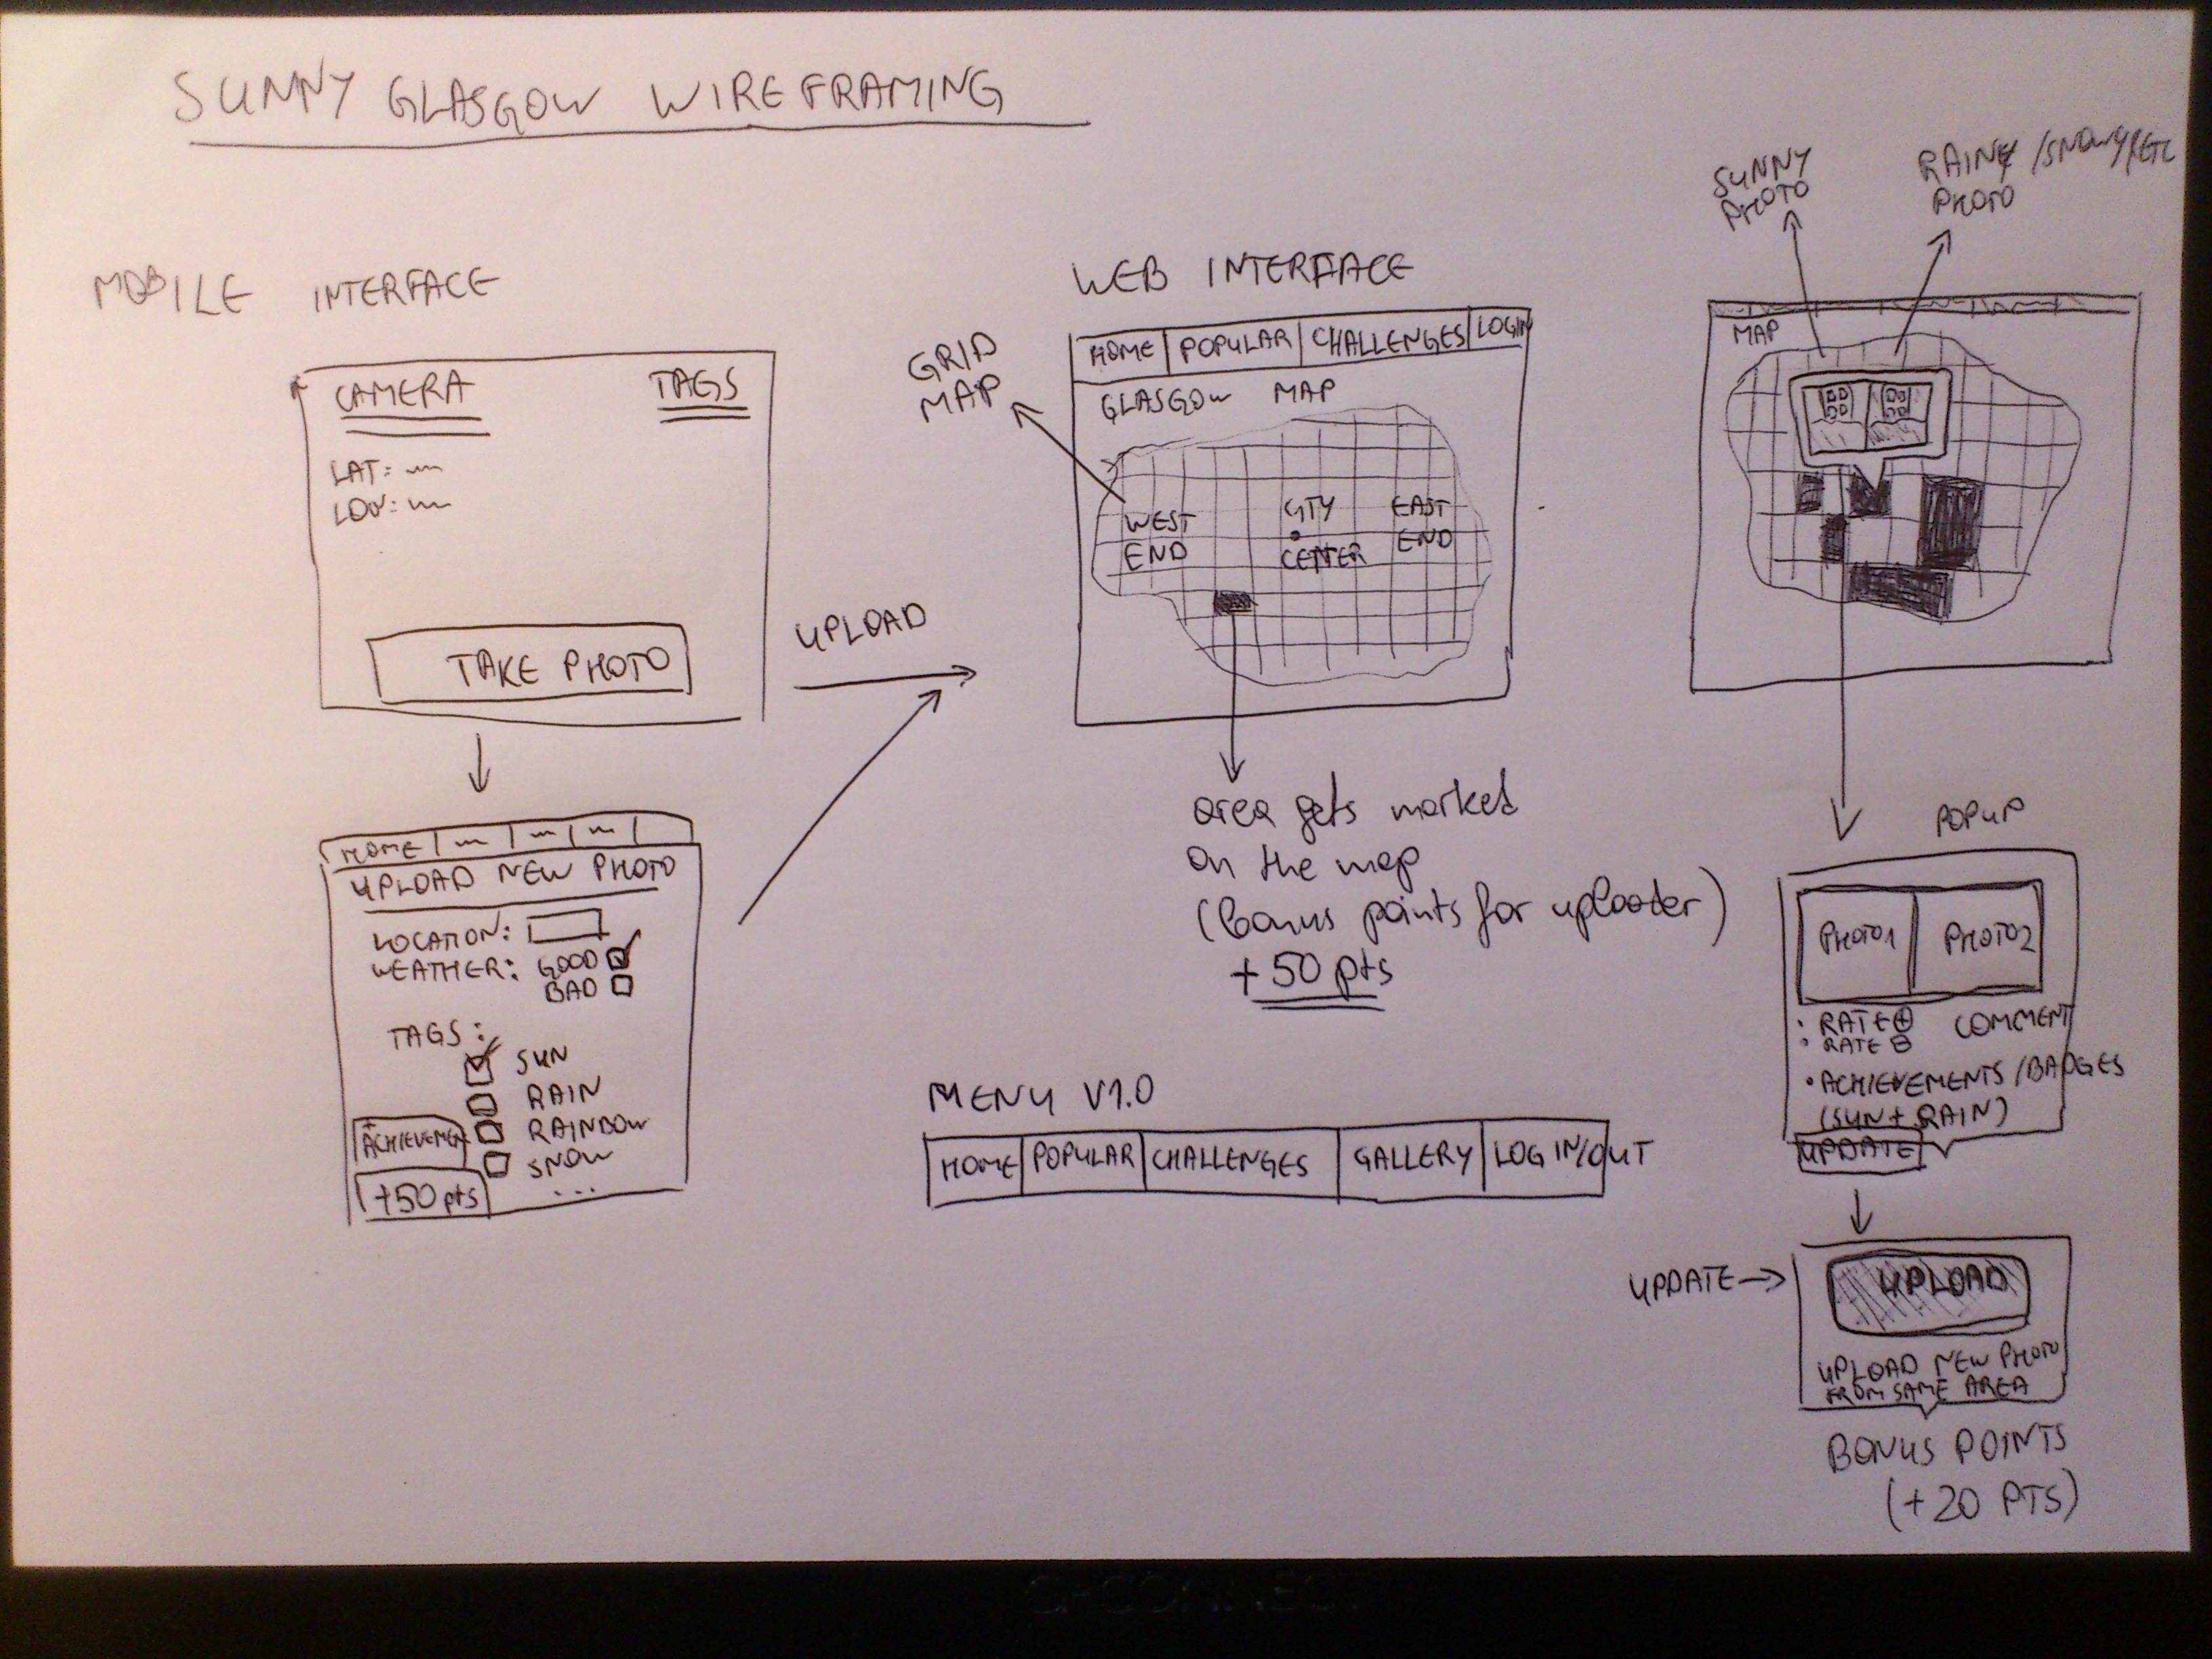 SUNNY GLASGOW WIREFRAMING
MOBILE INTERFACE
CAMERA
TAGS
LAT:
LON:
TAKE PHOTO
UPLOAD
HOME
UPLOAD NEW PHOTO
LOCATION:
WEATHER: GOOD
BAD
TAGS:
SUN
RAIN
RAINBOW
SNOW
...
+
ACHIEVEMENT
+50 pts
WEB INTERFACE
GRID
MAP
HOME POPULAR CHALLENGES LOGIN
GLASGOW MAP
WEST
END
CITY
CENTER
EAST
END
area gets marked
on the map
(bonus points for uploader)
+50 pts
MENU V1.0
HOME POPULAR CHALLENGES GALLERY LOG IN/OUT
SUNNY
PHOTO
RAINY/SNOWY/ETC
PHOTO
MAP
POPUP
PHOTO1 PHOTO2
• RATE + COMMENT
• RATE -
• ACHIEVEMENTS/BADGES
(SUN + RAIN)
UPDATE
UPDATE
UPLOAD
UPLOAD NEW PHOTO
FROM SAME AREA
BONUS POINTS
(+20 PTS)